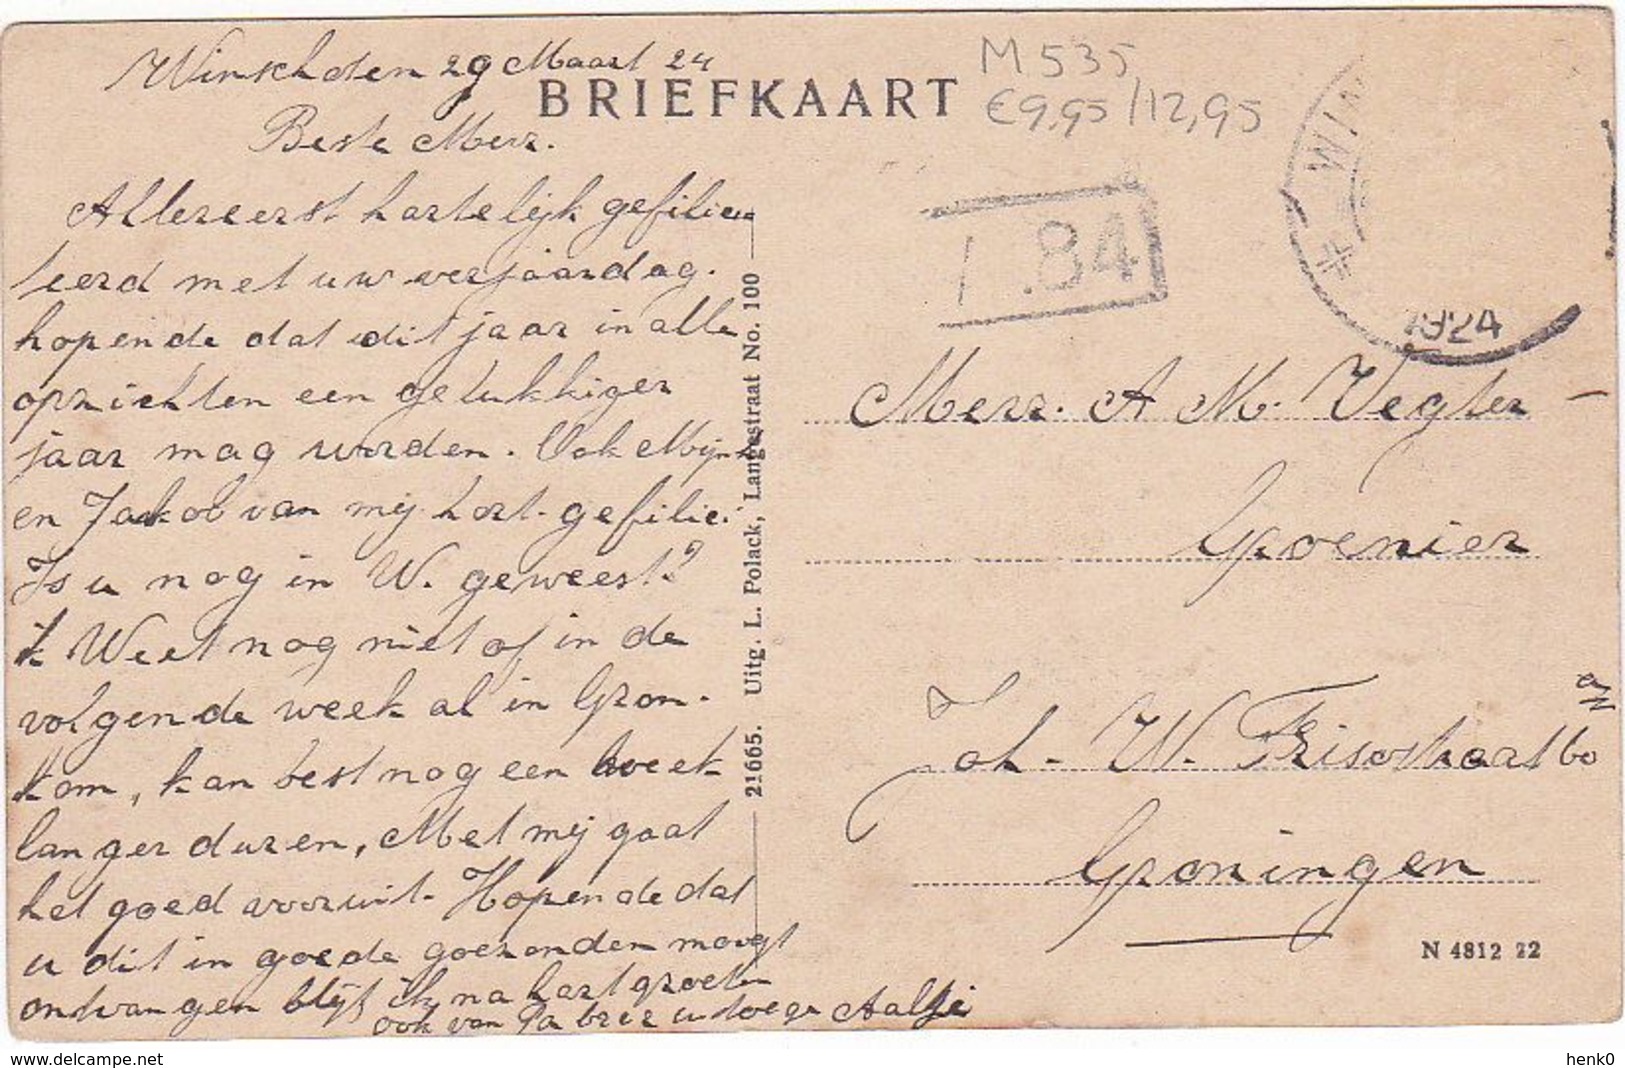 Winschoten 29 Maart 24
BRIEFKAART
M 535
€9,95/12,95
Beste Merr.
Allereerst hartelijk gefilici
teerd met uw verjaardag.
hopende dat dit jaar in alle
opzichten een gelukkiger
jaar mag worden. Ook Mijnh
en Jackob van mij hart. gefilic.
Is u nog in W. geweest?
ik Weet nog niet of in de
volgende week al in Gron.
kom, kan best nog een week
langer duren, Met mij gaat
het goed vooruit. Hopende dat
u dit in goede gezonden moogt
ontvangen blijf ik na hart groeten
ook van Pa broer u toegen Aaltje
21665. Uitg. L. Polack, Langestraat No. 100
1 .84
WIN
1924
Merr. A M. Vegter
Groenier
Joh. W. Frisostraat 60
Groningen
N 4812 22
www.delcampe.net
henk0